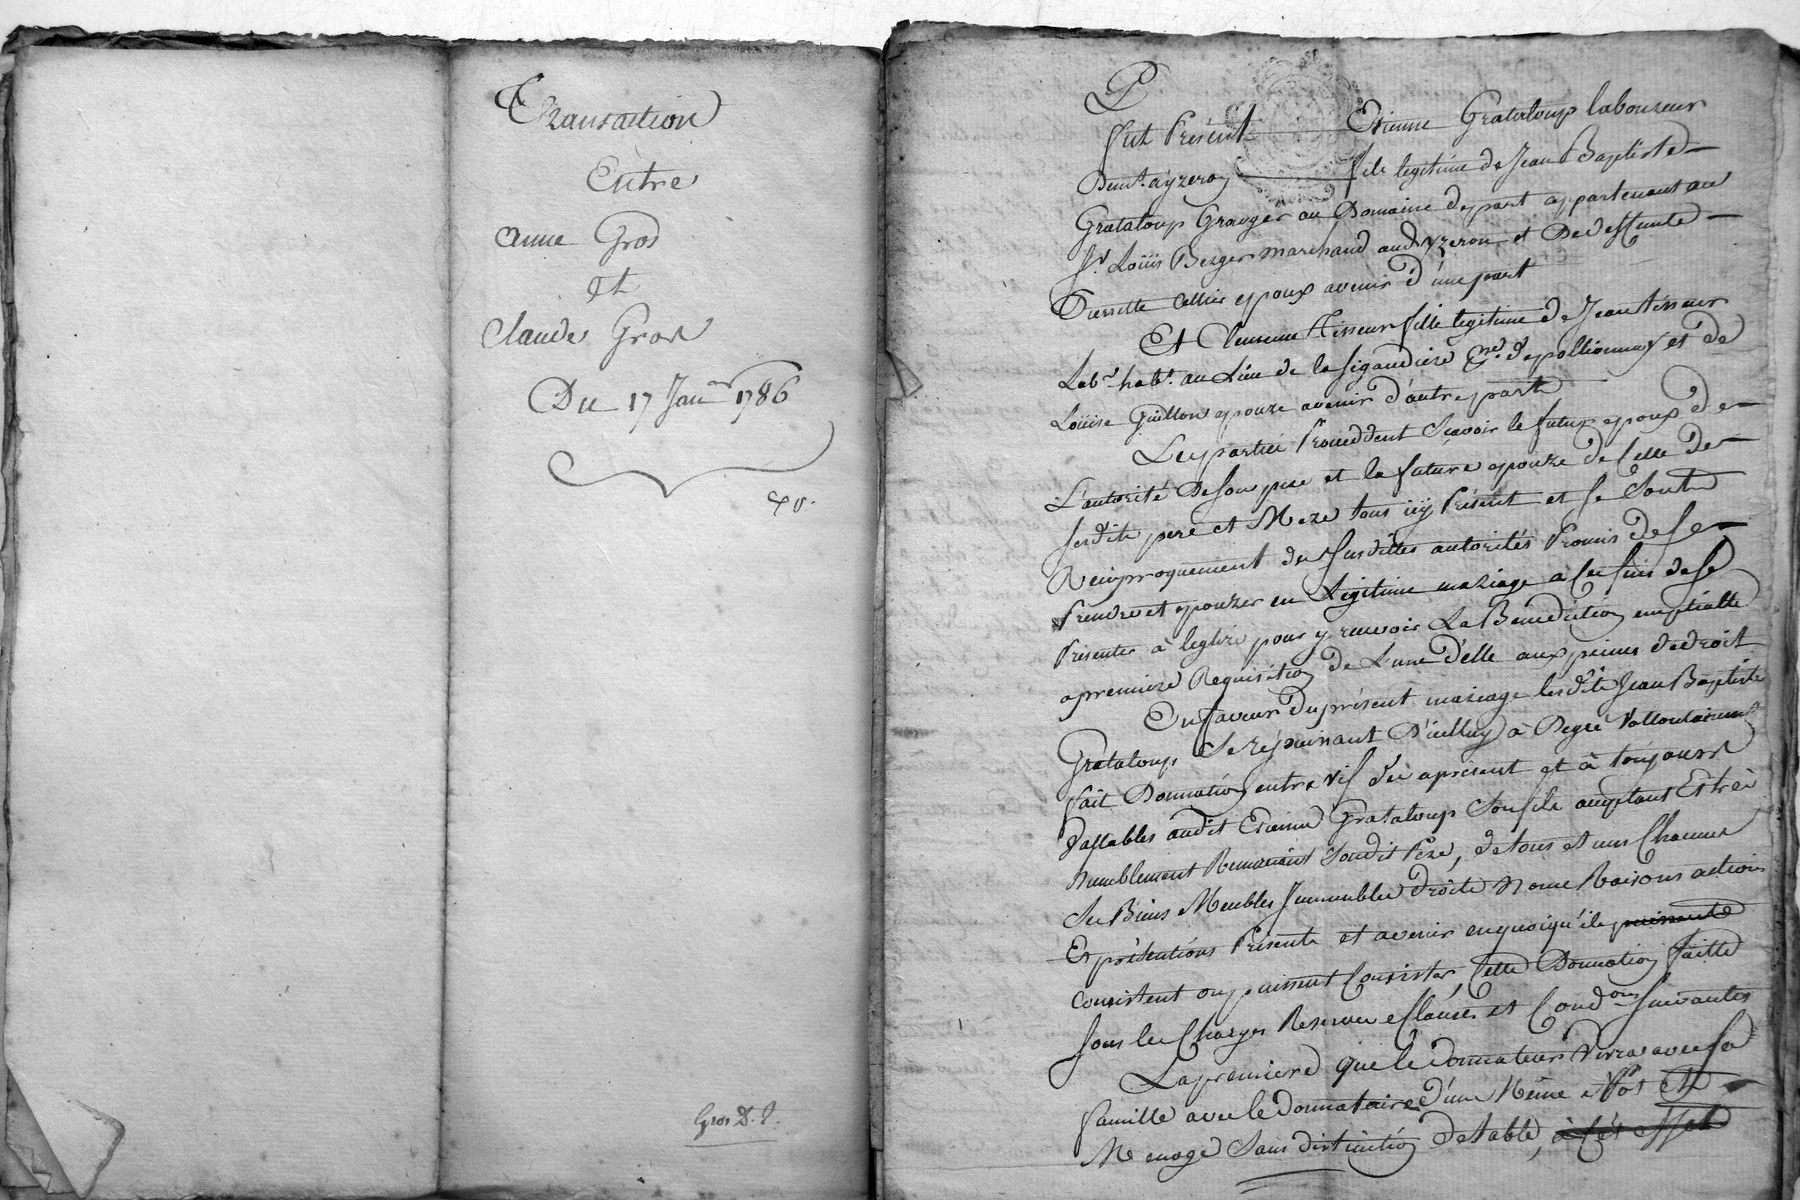 Transaction
Entre
Anne Gros
et
Claude Gros
Du 17 Janer 1786
Gros D. J.
P
fut Présent Etienne Grataloup laboureur
Demt. a yzeron fils legitime de Jean Baptiste
Grataloup Granger au Domaine depart appartenant au
Sr. Loüis Berger marchand aud yzeron et De deffunte
Pierrette Cellier epoux avenir d'une part
Et Tisseur fille legitime de Jean Tisseur
Labr. habt. au Lieu de la Sigaudiere de pollionnay et de
Loüise Guillon epouze avenir d'autre part
Les parties Proceddent Scavoir le futur epoux de
L'autorité De Son pere et la future epouze de Celle de
Sesdits pere et Mere tous icy Présent et se Sont
Reciproquement des Susdittes autorités Promis de Se
Prendre et epouzer en Legitime mariage a Ces fins de Se
Présenter a leglize pour y recevoir La Benediction nuptialle
a premiere Requisition de L'une d'elle aux peines de droit
En faveur Du présent mariage ledit Jean Baptiste
Grataloup Se réjouissant D'icelluy a De gré Vollontairement
fait Donnation entre vif d'ès apresent et à toujours
Vallables audit Etienne Grataloup Son fils acceptant Et très
humblement Remerciant Sondit Pere, de tous et uns Chacuns
Ses Biens Meubles Immeubles droits Noms Raisons actions
Et prétentions Présents et avenir en quoi qu'ils puissent
Consistent ou puissent Consister, Cette Donnation faitte
Sous les Charges Reserves Clauses et Condons Suivantes
La premiere que le Donnateur Vivra avec Sa
famille avec le Donnataire d'un Même Pot et
Menage Sans distinction de table, à Cet effet